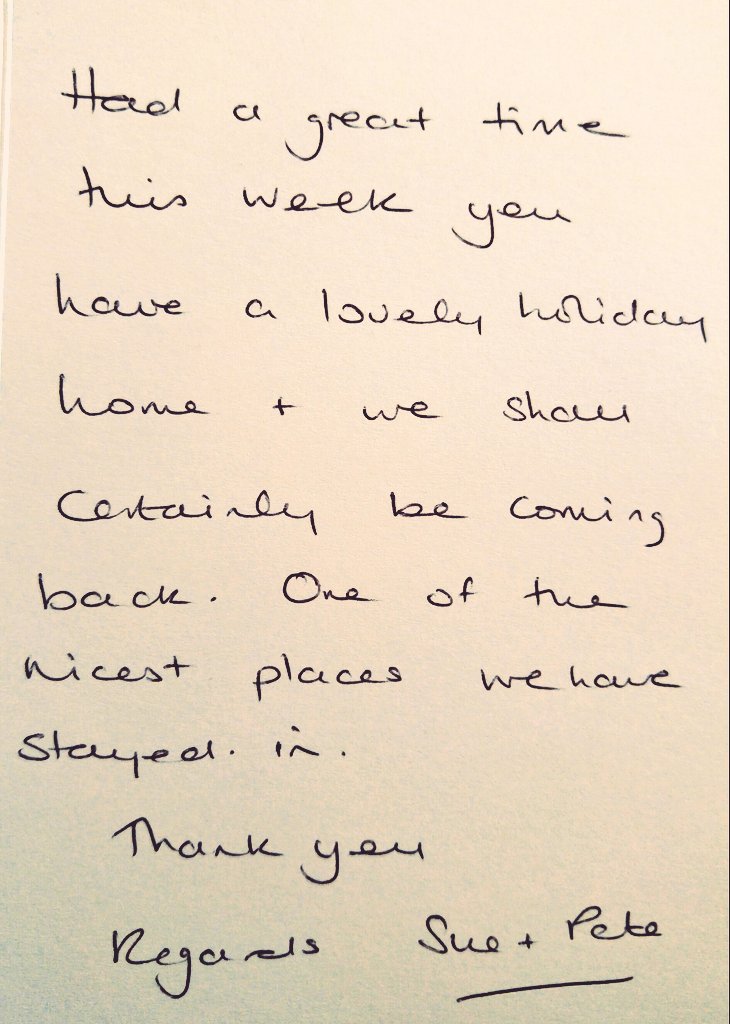 Had a great time
this week you
have a lovely holiday
home + we shall
Certainly be coming
back. One of the
nicest places we have
stayed. in.
Thank you
Regards Sue + Pete